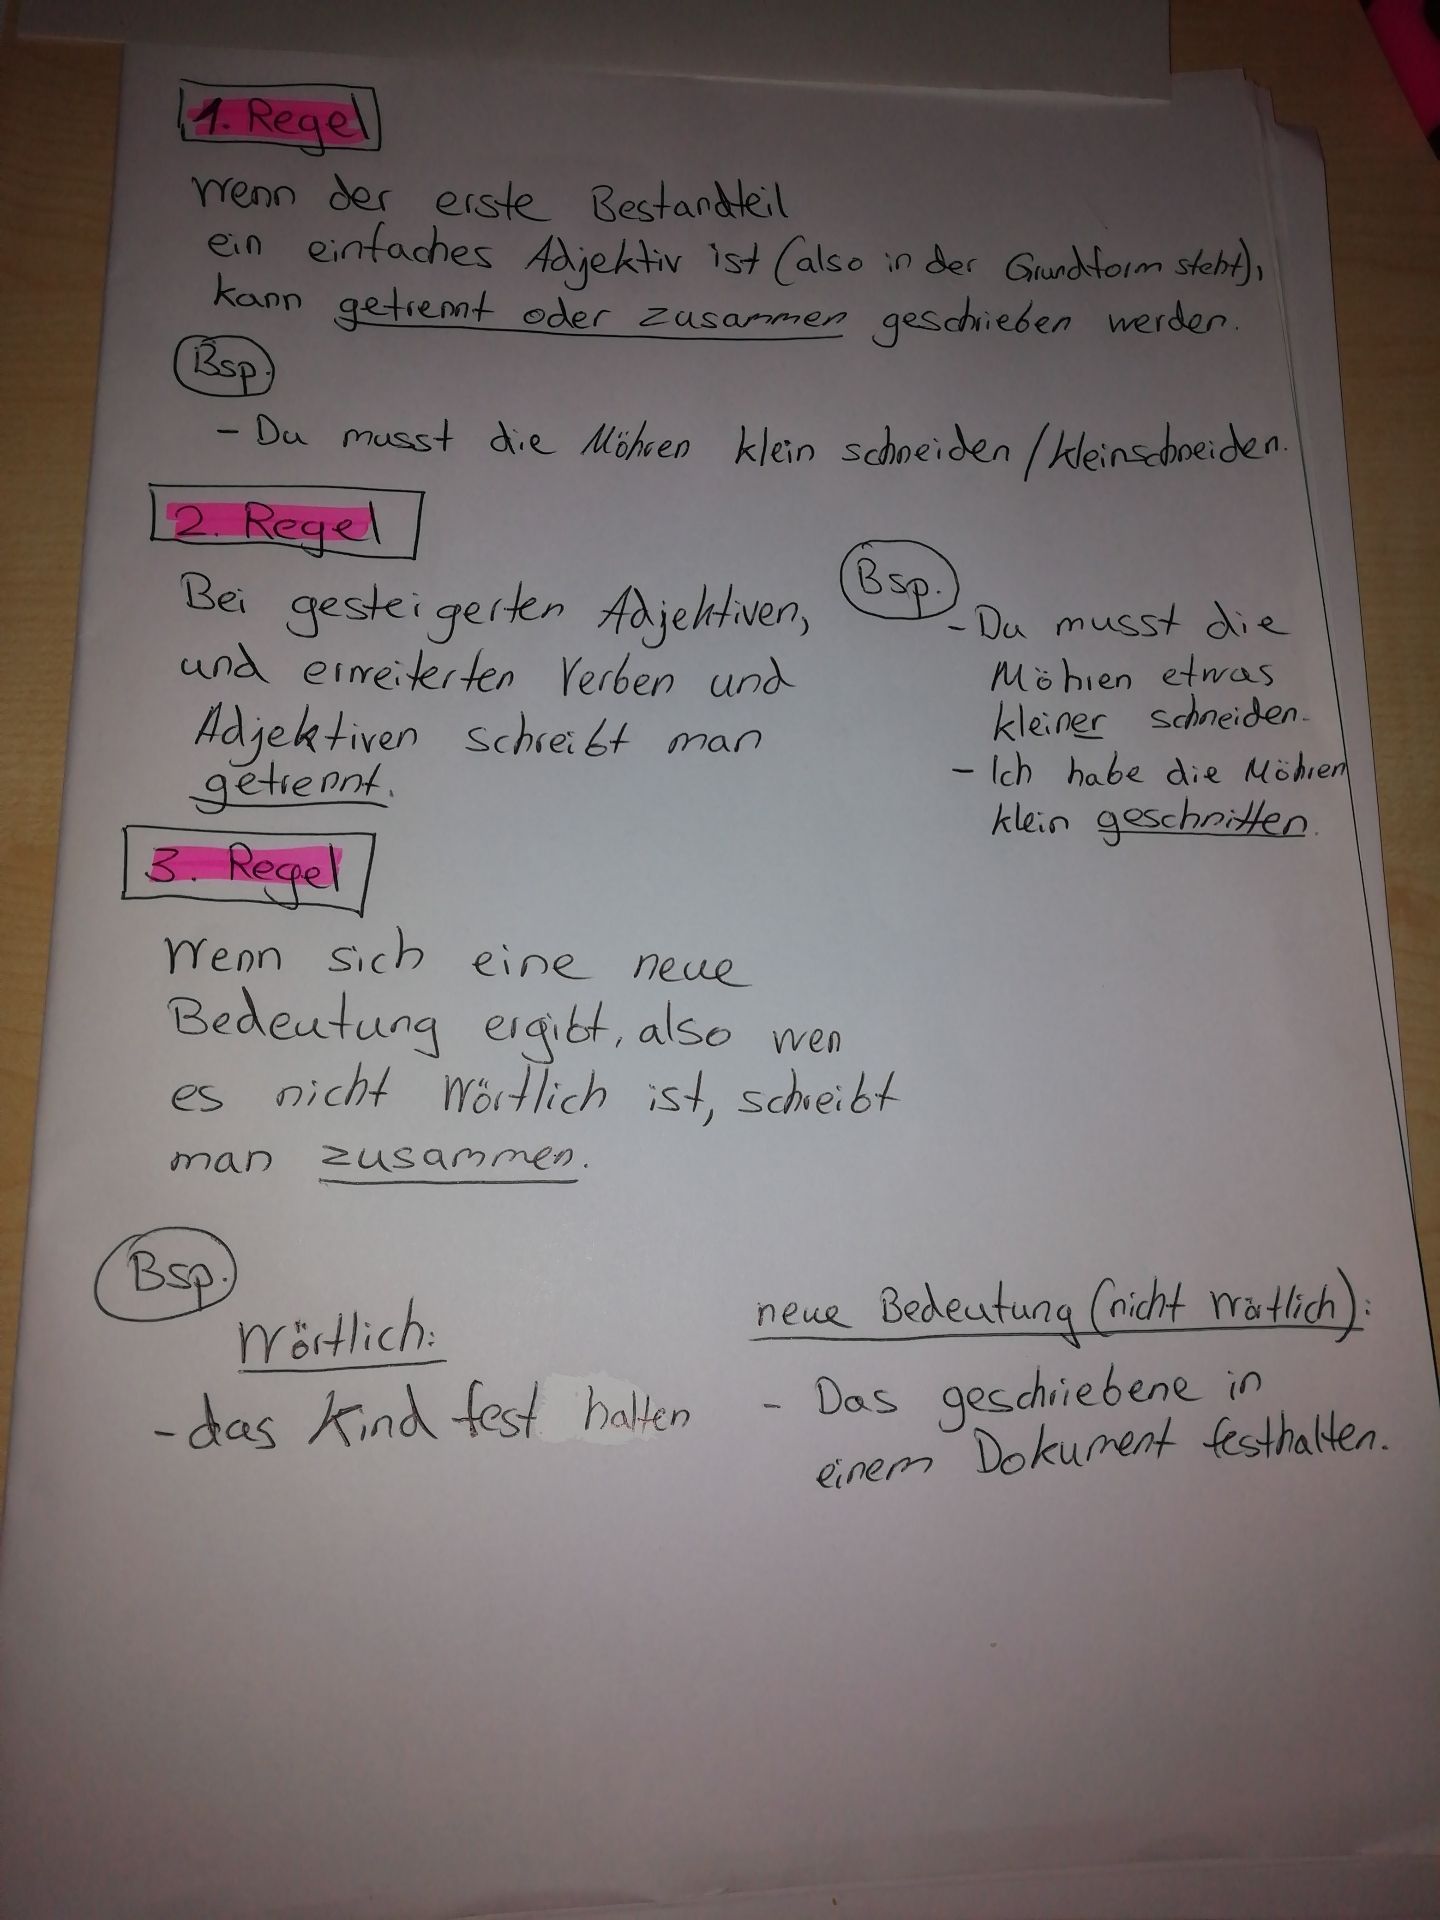 1. Regel
Wenn der erste Bestandteil
ein einfaches Adjektiv ist (also in der Grundform steht),
kann getrennt oder zusammen geschrieben werden.
Bsp.
- Du musst die Möhren klein schneiden / kleinschneiden.
2. Regel
Bei gesteigerten Adjektiven,
und erweiterten Verben und
Adjektiven schreibt man
getrennt.
Bsp.
- Du musst die
Möhren etwas
kleiner schneiden.
- Ich habe die Möhren
klein geschnitten.
3. Regel
Wenn sich eine neue
Bedeutung ergibt, also wen
es nicht Wörtlich ist, schreibt
man zusammen.
Bsp.
Wörtlich:
- das Kind fest halten
neue Bedeutung (nicht Wörtlich):
- Das geschriebene in
einem Dokument festhalten.